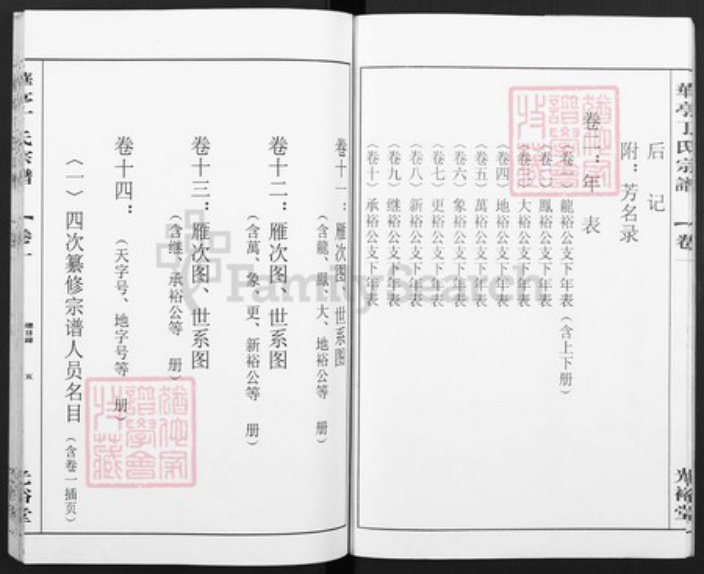 華亭丁氏宗譜 卷一
光裕堂
后记
附：芳名录
卷二：年表
（卷二）龍裕公支下年表（含上下册）
鳳裕公支下年表
大裕公支下年表
（卷四）地裕公支下年表
（卷五）萬裕公支下年表
（卷六）象裕公支下年表
（卷七）更裕公支下年表
（卷八）新裕公支下年表
（卷九）继裕公支下年表
（卷十）承裕公支下年表
卷十一：雁次图、世系图
（含龍、鳳、大、地裕公等 册）
卷十二：雁次图、世系图
（含萬、象、更、新裕公等 册）
卷十三：雁次图、世系图
（含继、承裕公等 册）
卷十四：
（天字号、地字号等 册）
（一）四次纂修宗谱人员名目（含卷一插页）
總目録 五
FamilySearch